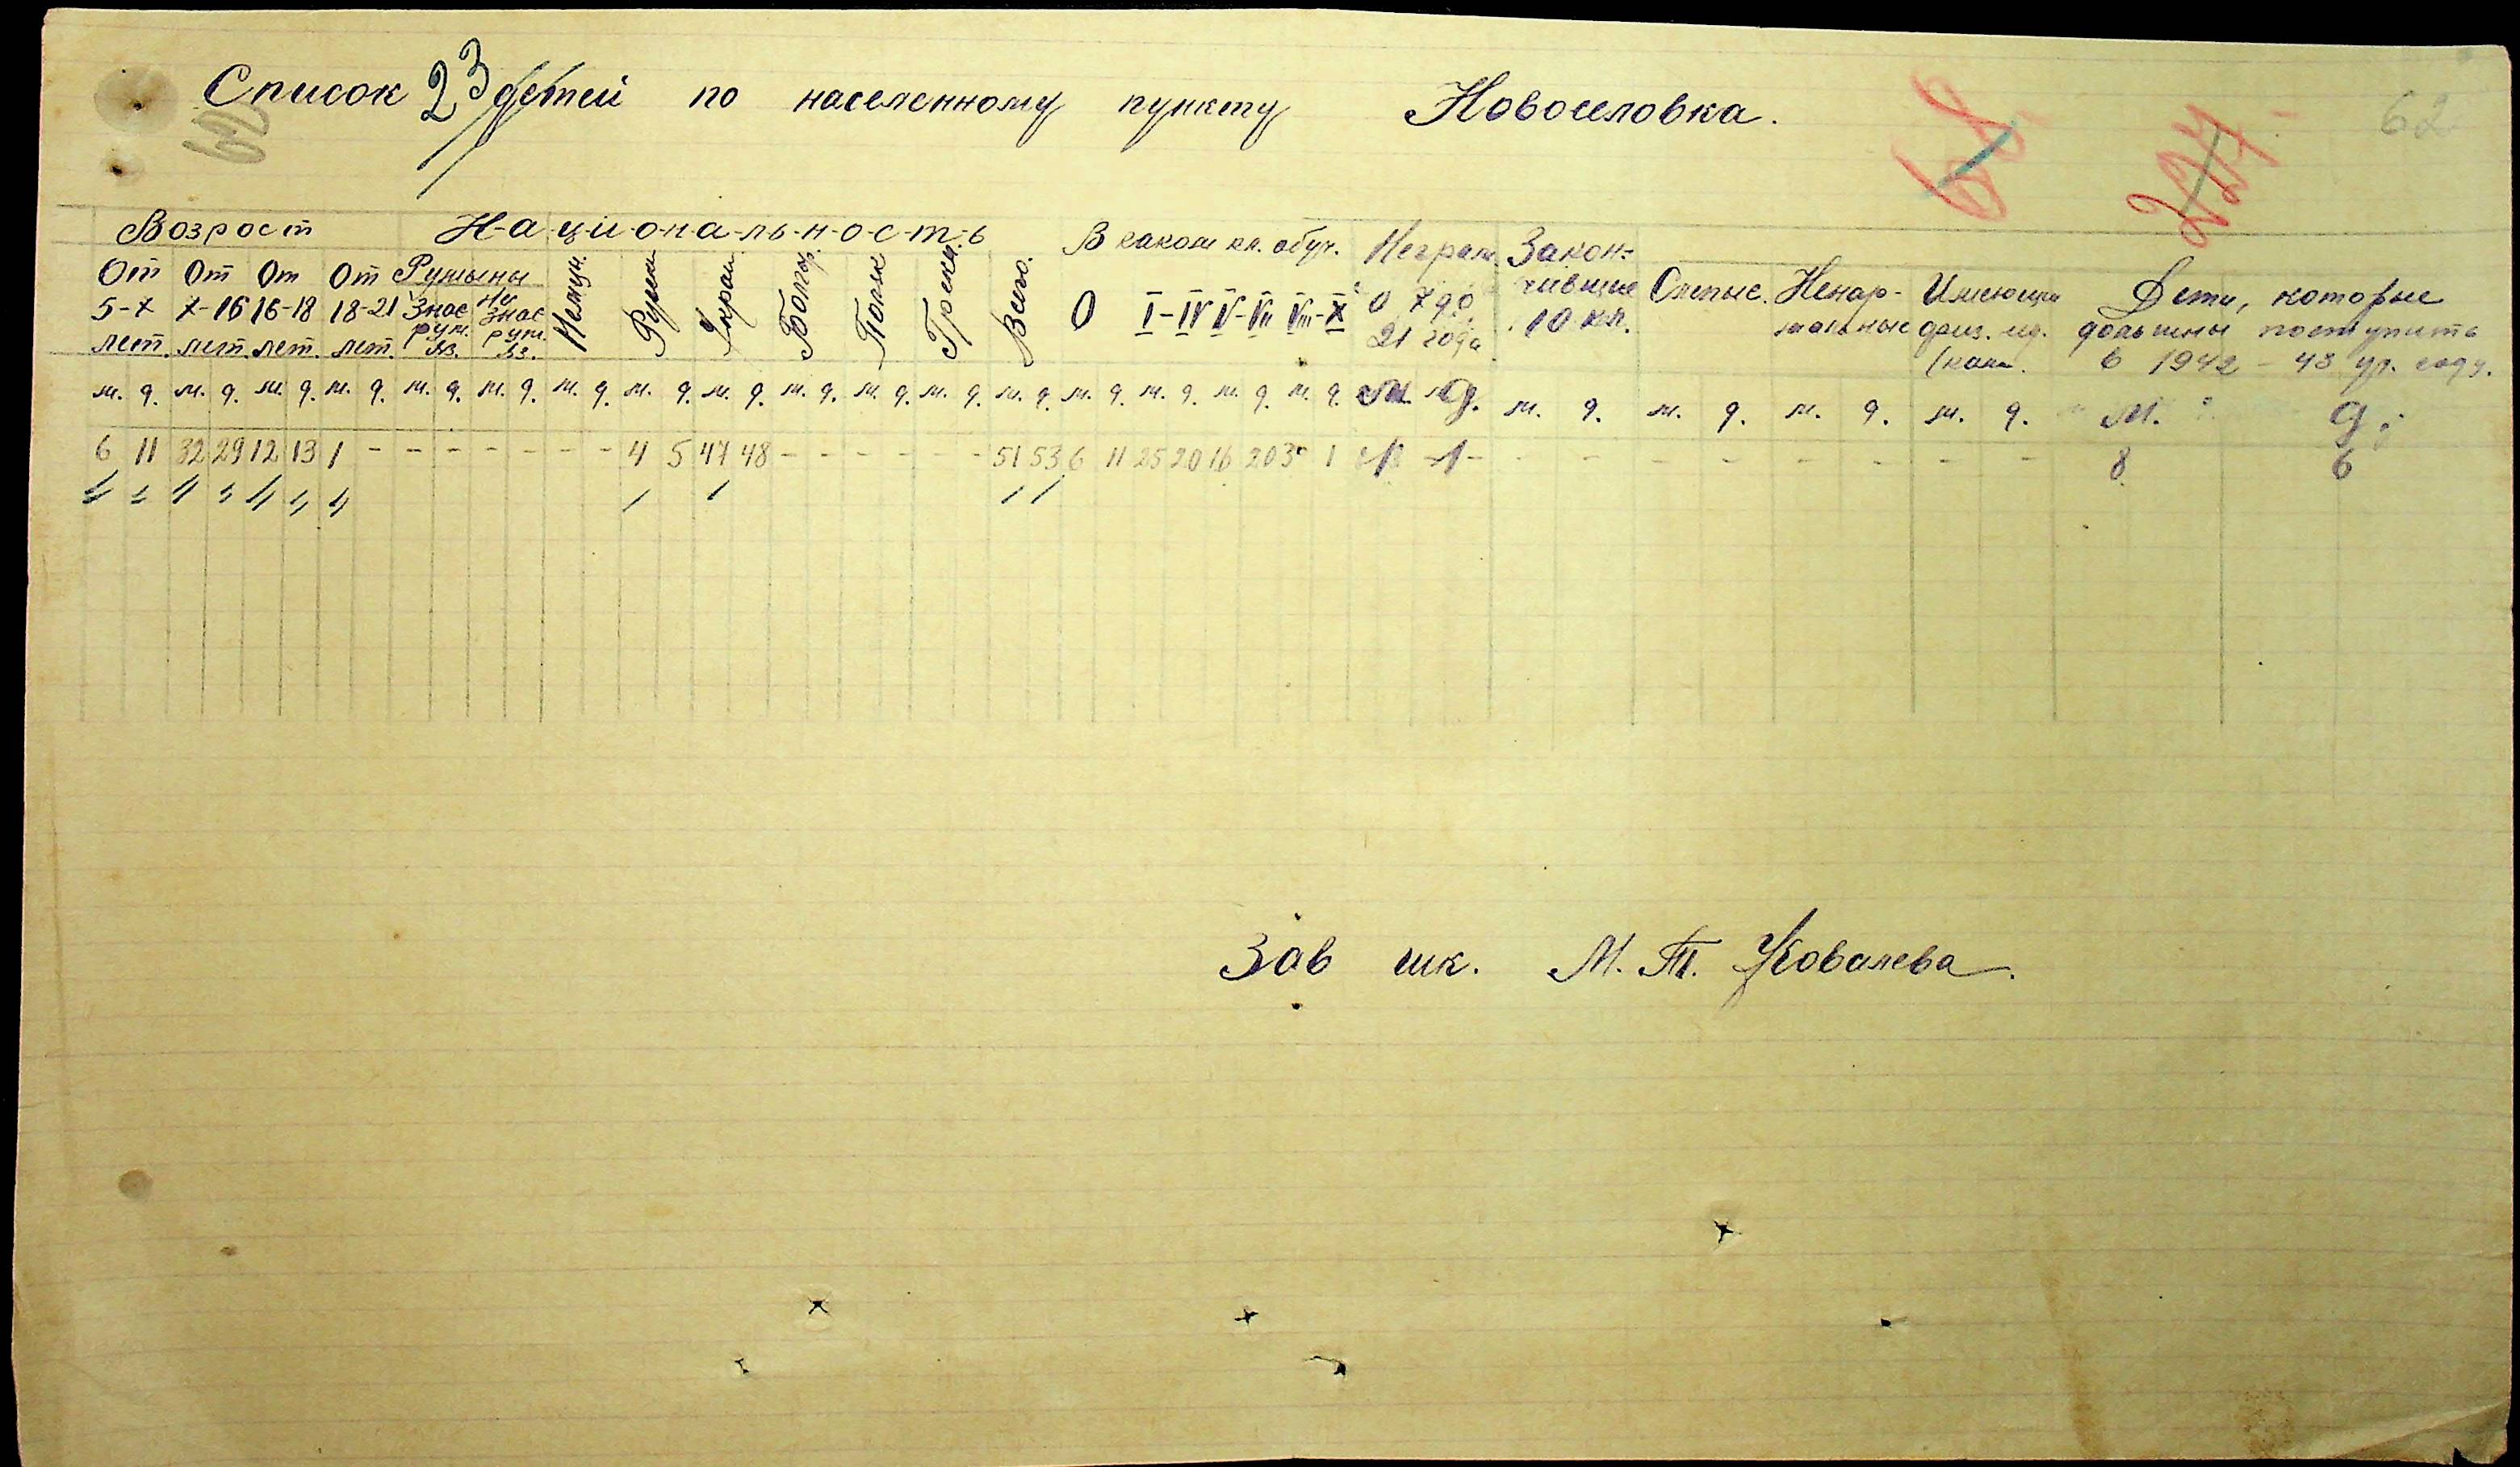 Список 23 детей по населенному пункту Новоселовка.
62
Возраст Н-а-ц-и-о-н-а-ль-н-о-с-т-ь В каком кл. обуч. Неграм. Закон-
От От От От Румыны Немцы. Русски Украин Болгар. Поляк Грекы. Всего. 0 I-IV V-VII VIII-X 0 7 до чившие Слепые. Ненар- Имеющи Дети, которые
5-7 7-16 16-18 18-21 Знас Не знас 21 года 10 кл. мальные физ. нед. должны поступить
лет. лет. лет. лет. рум. яз. рум. яз. в 1942-43 уч. году.
м. д. м. д. м. д. м. д. м. д. м. д. м. д. м. д. м. д. м. д. м. д. м. д. м. д. м. д. м. д. м. д. м. д. м. д. м. д. м. д. м. д. м. д. м. д.
6 11 32 29 12 13 1 - - - - - - - 4 5 47 48 - - - - - - 51 53 6 11 25 20 16 20 3 1 - - - - - - - - 8 6
Зав шк. М. Т. Ковалева.